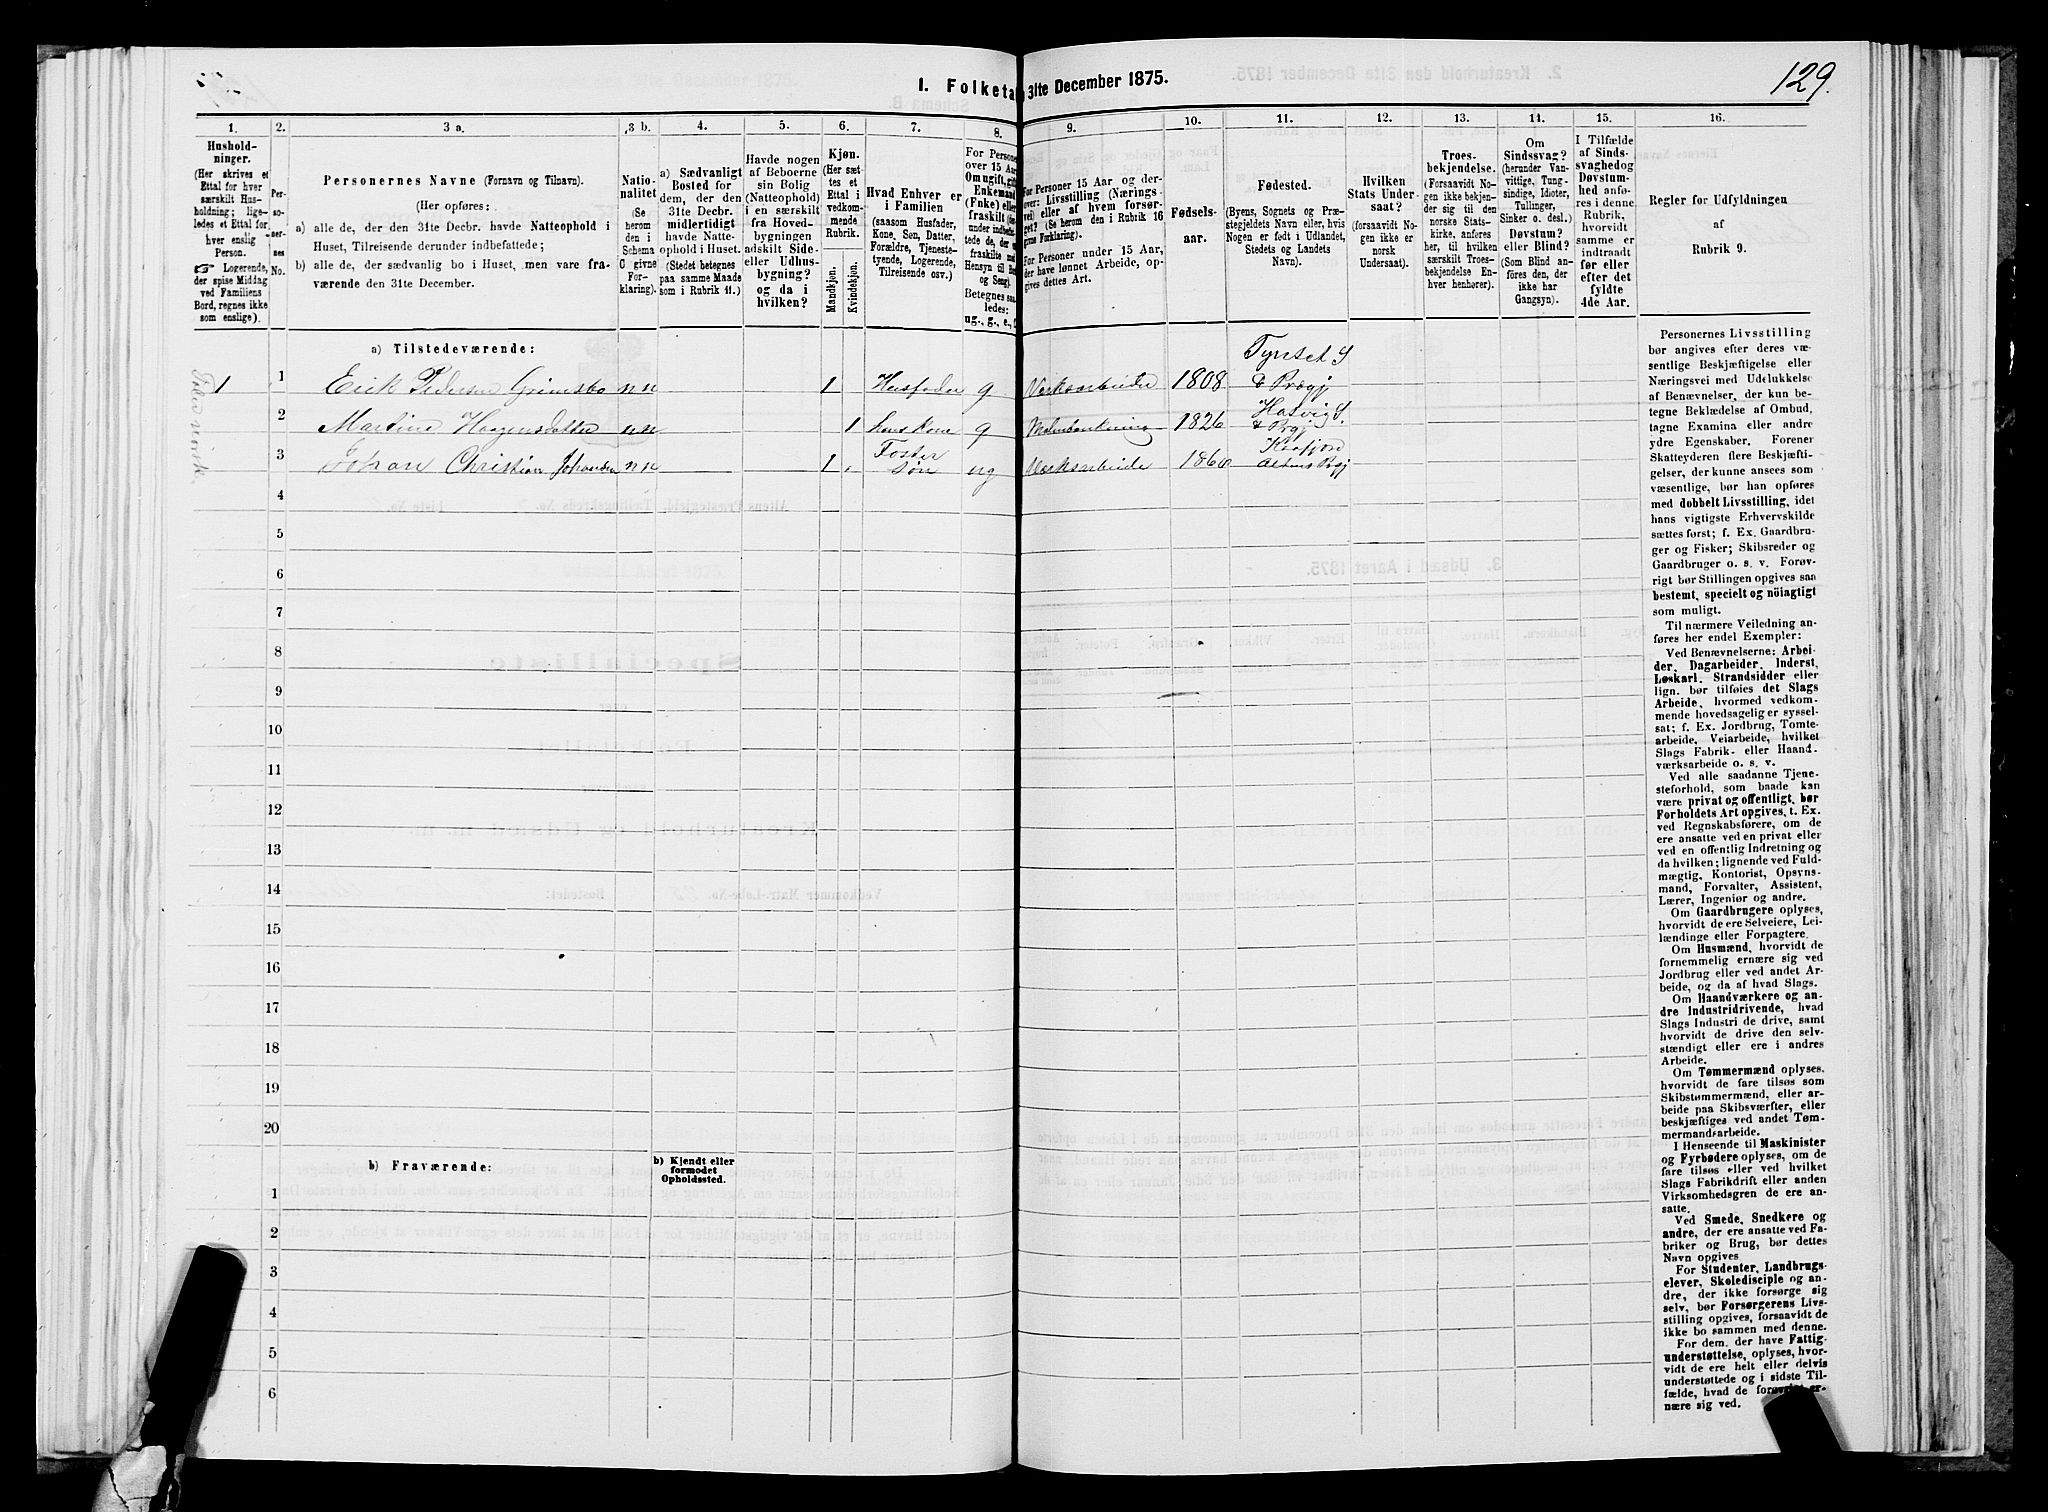 I. Folketa 31te December 1875.
129.
1.
Hushold-
ninger.
(Her skrives et
Ettal for hver
særskilt Hus-
holdning; lige-
ledes et Ettal for
hver enslig
Person.
☞ Logerende,
der spise Middag
ved Familiens
Bord, regnes ikke
som enslige).
2.
Per-
so-
ner-
nes
No.
3 a.
Personernes Navne (Fornavn og Tilnavn).
(Her opføres:
a) alle de, der den 31te Decbr. havde Natteophold i
Huset, Tilreisende derunder indbefattede;
b) alle de, der sædvanlig bo i Huset, men vare fra-
værende den 31te December.
3 b.
Natio-
nalitet
(Se
herom
den i
Schema
C givne
For-
klaring).
4.
a) Sædvanligt
Bosted for
dem, der den
31te Decbr.
midlertidigt
havde Natte-
ophold i Huset.
(Stedet betegnes
paa samme Maade
som i Rubrik 11.)
5.
Havde nogen
af Beboerne
sin Bolig
(Natteophold)
i en særskilt
fra Hoved-
bygningen
adskilt Side-
eller Udhus-
bygning?
og da i
hvilken?
6.
Kjøn.
(Her sæt-
tes et
Ettal i
vedkom-
mende
Rubrik.
Mandkjøn.
Kvindekjøn.
7.
Hvad Enhver er
i Familien
(saasom Husfader,
Kone, Søn, Datter,
Forældre, Tjeneste-
tyende, Logerende,
Tilreisende osv.)
8.
For Personer
over 15 Aar
Om ugift, gift
Enkemand
(Enke) eller
fraskilt
Betegnes saa-
ledes:
ug., g., e.,
9.
For Personer 15 Aar og der-
over: Livsstilling (Nærings-
vei) eller af hvem forsør-
get? (Se herom den i Rubrik 16
givne Forklaring).
For Personer under 15 Aar,
der have lønnet Arbeide, op-
gives dettes Art.
10.
Fødsels-
aar.
11.
Fødested.
(Byens, Sognets og Præ-
stegjeldets Navn eller, hvis
Nogen er født i Udlandet,
Stedets og Landets
Navn).
12.
Hvilken
Stats Under-
saat?
(forsaavidt No-
gen ikke er
norsk
Undersaat).
13.
Troes-
bekjendelse.
(Forsaavidt No-
gen ikke bekjen-
der sig til den
norske Stats-
kirke, anføres
her, til hvilken
særskilt Troes-
bekjendelse En-
hver henhører).
14.
Om
Sindssvag?
(herunder Van-
vittige, Tung-
sindige, Idioter,
Tullinger,
Sinker o. desl.)
Døvstum?
eller Blind?
(Som Blind an-
føres den, der
ikke har
Gangsyn).
15.
I Tilfælde
af Sinds-
svaghed og
Døvstum-
hed anfø-
res i denne
Rubrik,
hvorvidt
samme er
indtraadt
før eller
efter det
fyldte
4de Aar.
16.
Regler for Udfyldningen
af
Rubrik 9.
a) Tilstedeværende:
1 1 Erik Pedersen Grimsbo nn 1 Husfader g Verksarbeider 1808 Tynset S & Prægj
2 Martine Haagensdatter nn 1 hans Kone g 1826 S. & Prgj
3 Johan Christian Johansen nn 1 Foster Søn ug Verksarbeide Kaafjord Altens Prgj
4
5
6
7
8
9
10
11
12
13
14
15
16
17
18
19
20
b) Fraværende:
b) Kjendt eller
formodet
Opholdssted.
1
2
3
4
5
6
Personernes Livsstilling
bør angives efter deres væ-
sentlige Beskjæftigelse eller
Næringsvei med Udelukkelse
af Benævnelser, der kun be-
tegne Beklædelse af Ombud,
tagne Examina eller andre
ydre Egenskaber. Forener
Skatteyderen flere Beskjæfti-
gelser, der kunne ansees som
væsentlige, bør han opføres
med dobbelt Livsstilling, idet
hans vigtigste Erhvervskilde
sættes først; f. Ex. Gaardbru-
ger og Fisker; Skibsreder og
Gaardbruger o. s. v. Forøv-
rigt bør Stillingen opgives saa
bestemt, specielt og nöiagtigt
som muligt.
Til nærmere Veiledning an-
føres her endel Exempler:
Ved Benævnelserne: Arbei-
der, Dagarbeider, Inderst,
Løskarl, Strandsidder eller
lign. bør tilføies det Slags
Arbeide, hvormed vedkom-
mende hovedsagelig er syssel-
sat; f. Ex. Jordbrug, Tomte-
arbeide, Veiarbeide, hvilket
Slags Fabrik- eller Haand-
værksarbeide o. s. v.
Ved alle saadanne Tjene-
steforhold, som baade kan
være privat og offentligt, bør
Forholdets Art opgives, t. Ex.
ved Regnskabsførere, om de
ere ansatte ved en privat eller
ved en offentlig Indretning og
da hvilken; lignende ved Fuld-
mægtig, Kontorist, Opsyns-
mand, Forvalter, Assistent,
Lærer, Ingeniør og andre.
Om Gaardbrugere oplyses,
hvorvidt de ere Selveiere, Lei-
lændinge eller Forpagtere.
Om Husmænd, hvorvidt de
fornemmelig ernære sig ved
Jordbrug eller ved andet Ar-
beide, og da af hvad Slags.
Om Haandværkere og an-
dre Industridrivende, hvad
Slags Industri de drive, samt
hvorvidt de drive den selv-
stændigt eller ere i andres
Arbeide.
Om Tømmermænd oplyses,
hvorvidt de fare tilsøs som
Skibstømmermænd, eller ar-
beide paa Skibsværfter, eller
beskjæftiges ved andet Tøm-
mermandsarbeide.
I Henseende til Maskinister
og Fyrbødere oplyses, om de
fare tilsøs eller ved hvilket
Slags Fabrikdrift eller anden
Virksomhedsgren de ere an-
satte.
Ved Smede, Snedkere og
andre, der ere ansatte ved Fa-
briker og Brug, bør dettes
Navn opgives
For Studenter, Landbrugs-
elever, Skoledisciple og an-
dre, der ikke forsørge sig
selv, bør Forsørgerens Livs-
stilling opgives, forsaavidt de
ikke bo sammen med denne.
For dem, der have Fattig-
understøttelse, oplyses, hvor-
vidt de ere helt eller delvis
understøttede og i sidste Til-
fælde, hvad de forøvrigt er-
nære sig ved.